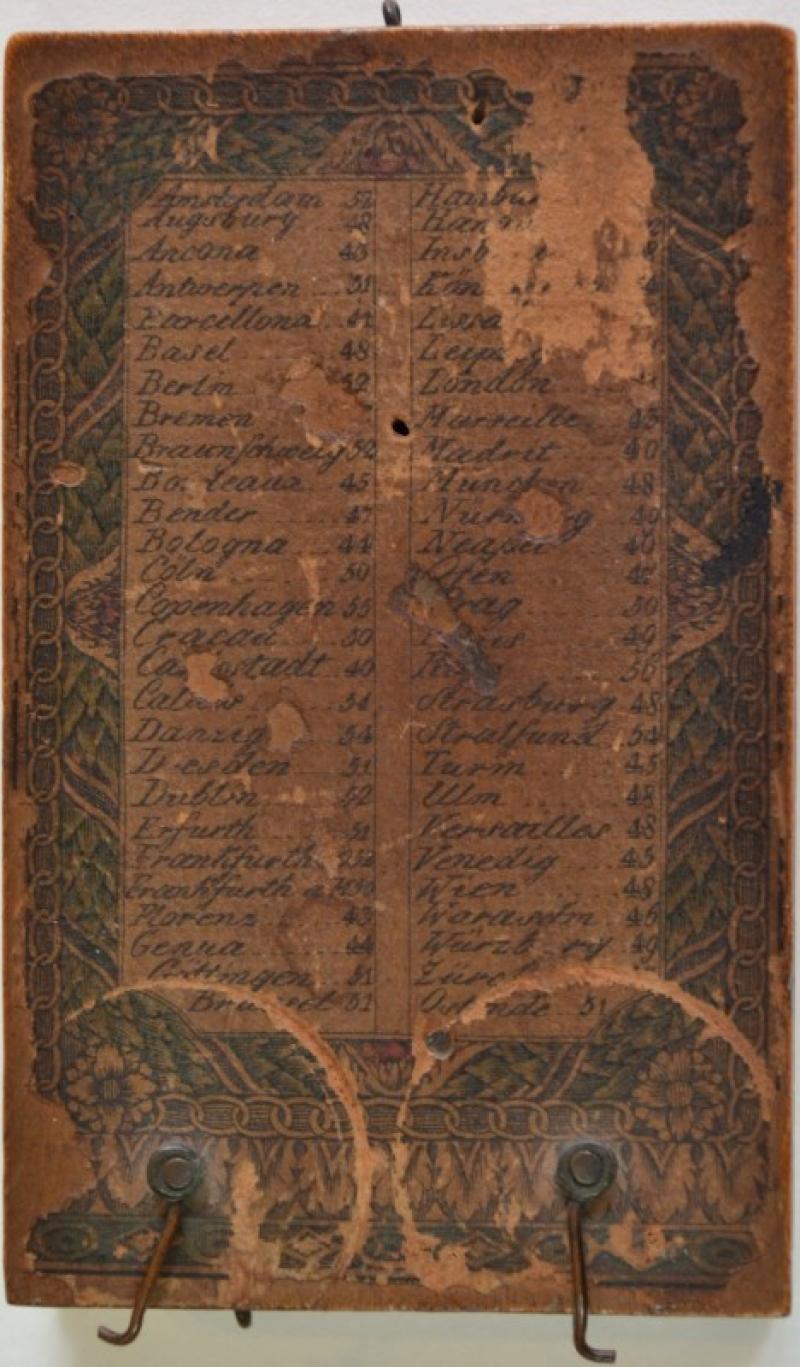 Amsterdam 52
Augsburg 48
Ancona 43
Antwerpen 51
Barcellona 41
Basel 48
Berlin 52
Bremen
Braunschweig 52
Bordeaux 45
Bender 47
Bologna 44
Cöln 50
Copenhagen 55
Cracau 50
Carlstadt 40
51
Danzig 54
Dresden 51
Dublin 52
Erfurth 51
Frankfurth
Frankfurth a M 50
Florenz 43
Genua 44
Gottingen 51
Brussel 51
Hambu
Han
Insb
Kön
Lissa
Leip
London
Marseille 43
Madrit 40
München 48
Nurnberg 49
Neapel 40
Ofen 47
Prag 50
Paris 49
56
Strasburg 48
Stralsund 54
Turin 45
Ulm 48
Versailles 48
Venedig 45
Wien 48
Warasdin 46
Würzb rg 49
Zürch
Ostende 51